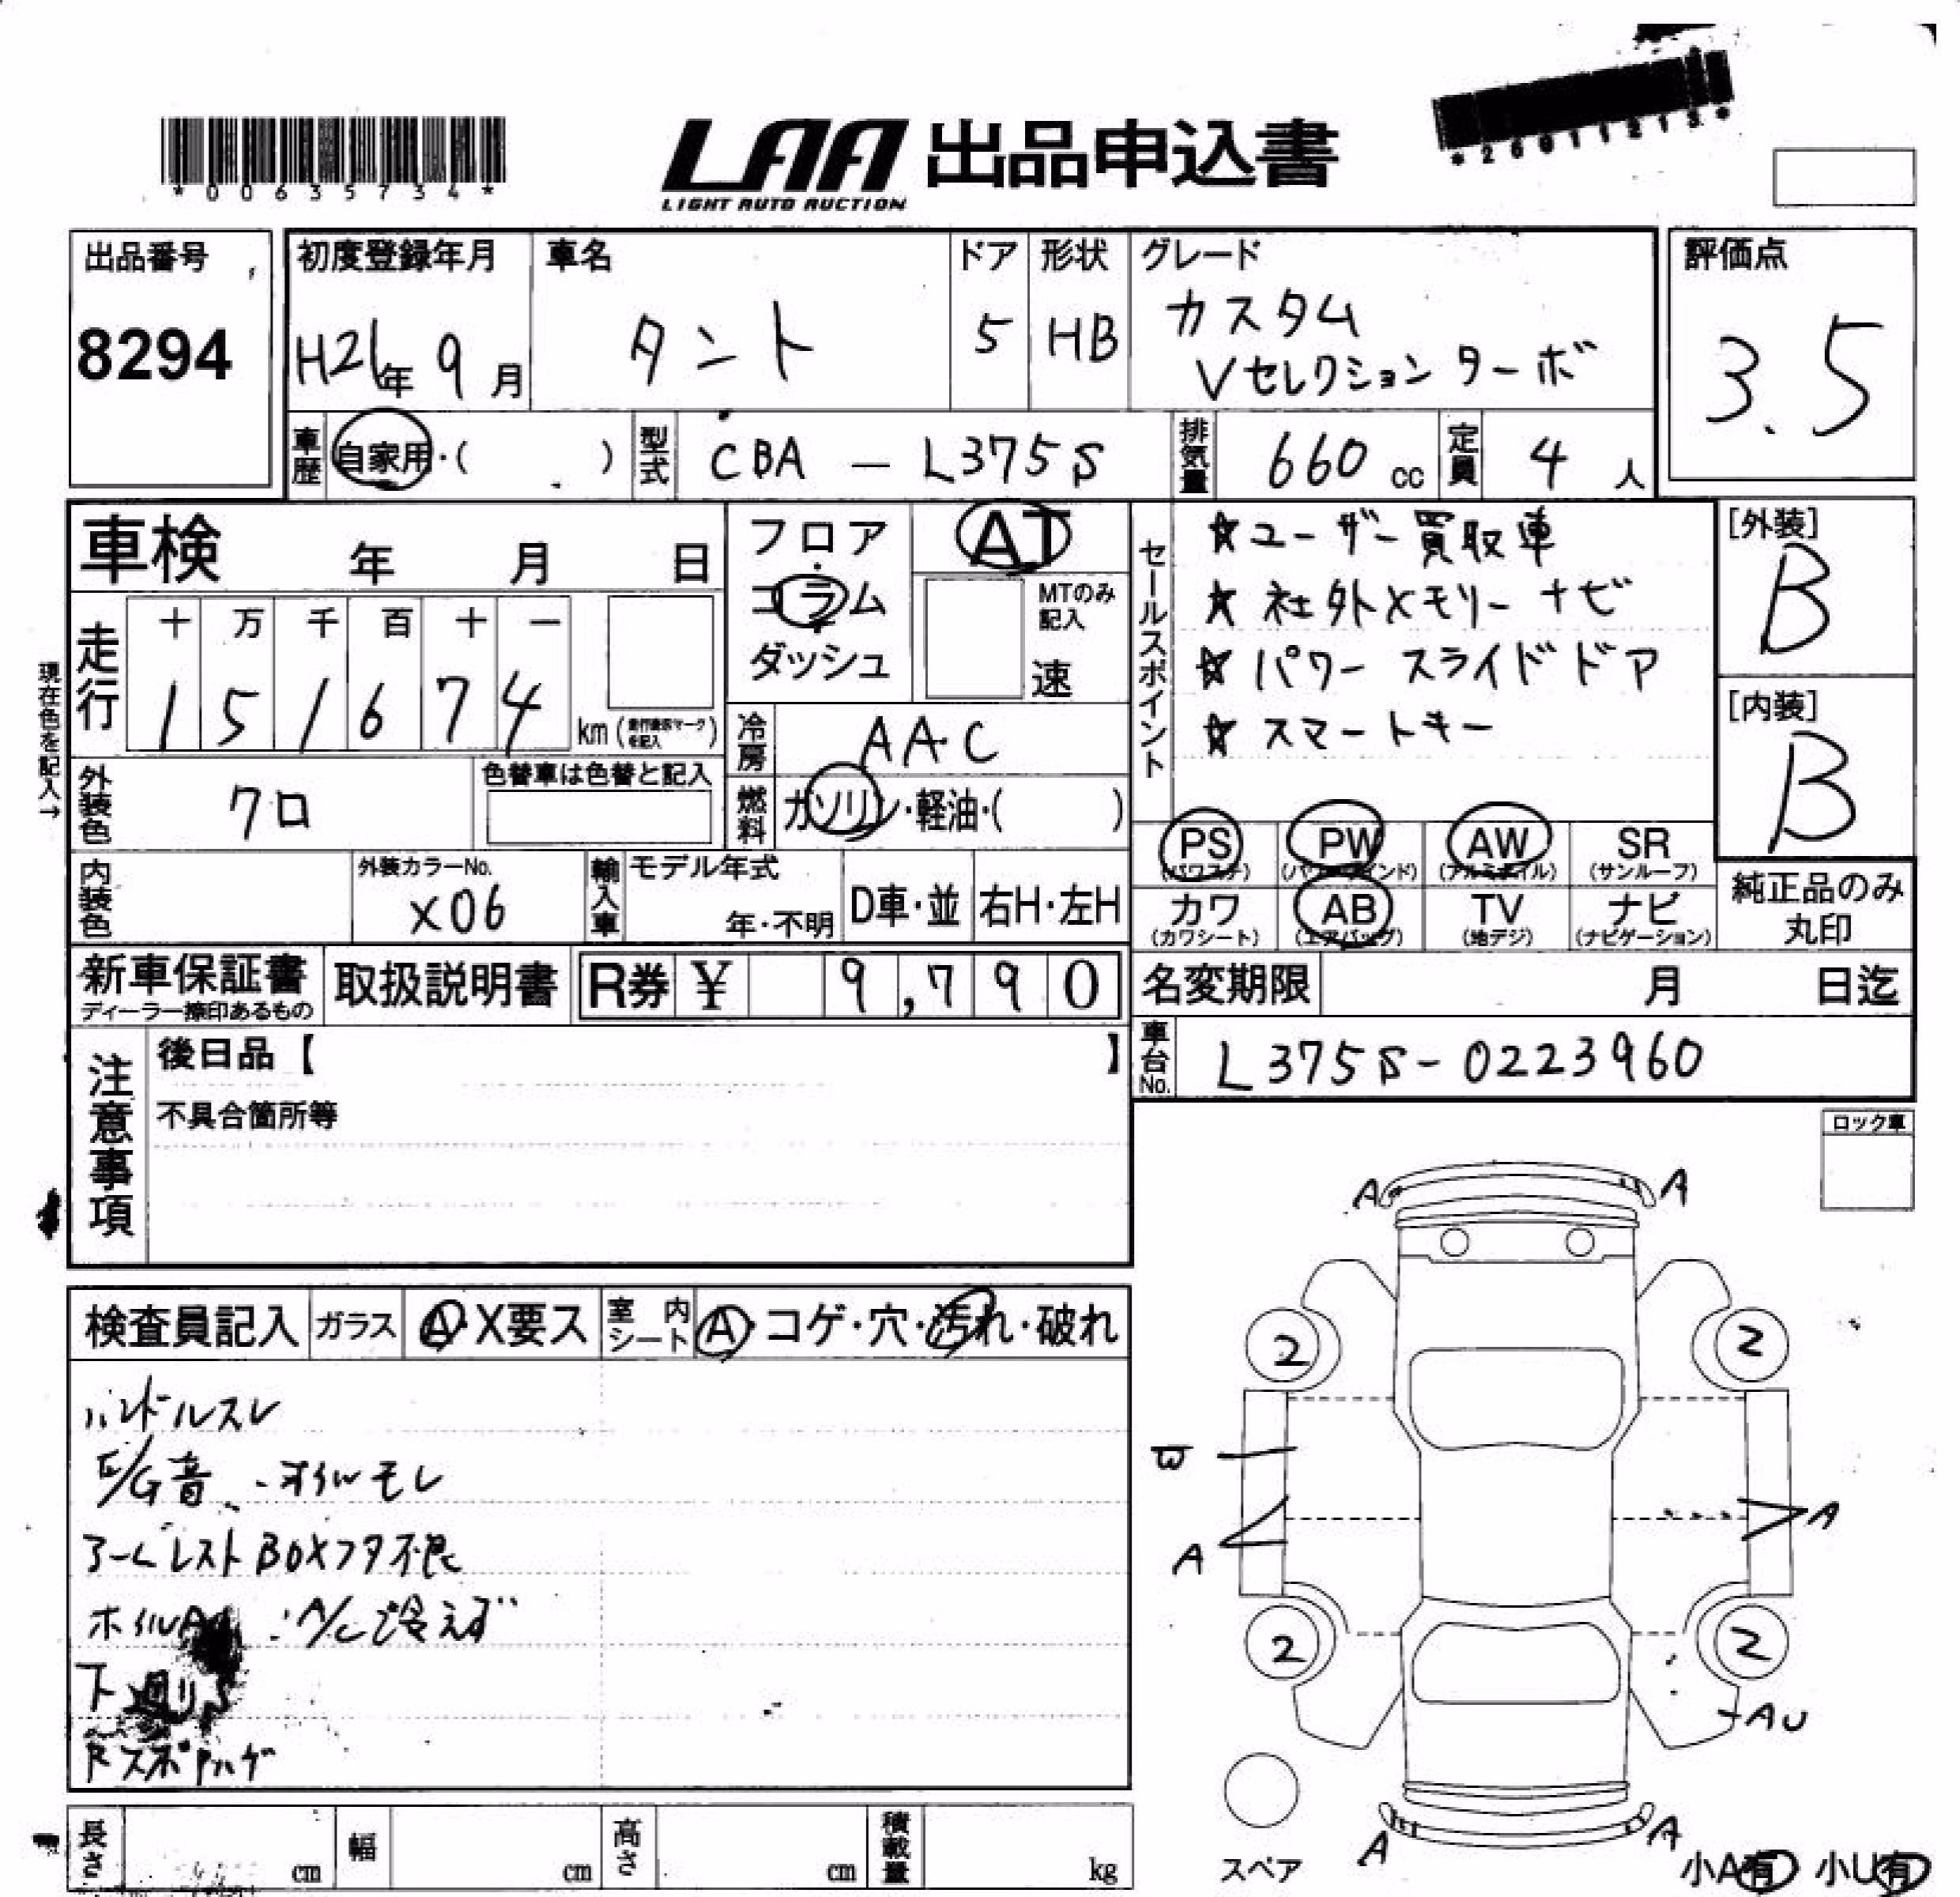 *00635734*
LAA 出品申込書
LIGHT AUTO AUCTION
*26011213*
出品番号
8294
初度登録年月
H21年 9月
車名
タント
ドア
5
形状
HB
グレード
カスタム
Vセレクションターボ
評価点
3.5
車歴
自家用・( )
型式
CBA - L375S
排気量
660 cc
定員
4 人
車検 年 月 日
フロア
・
コラム
・
ダッシュ
AT
MTのみ
記入
速
セールスポイント
☆ユーザー買取車
☆社外メモリーナビ
☆パワースライドドア
☆スマートキー
[外装]
B
[内装]
B
現在色を記入→
走行
十 万 千 百 十 一
1 5 1 6 7 4
km(走行要否マーク
を記入)
冷房
AAC
外装色
クロ
色替車は色替と記入
燃料
ガソリン・軽油・( )
PS
(パワステ)
PW
(パワーウインド)
AW
(アルミホイル)
SR
(サンルーフ)
内装色
外装カラーNo.
X06
輸入車
モデル年式
年・不明
D車・並
右H・左H
カワ
(カワシート)
AB
(エアバッグ)
TV
(地デジ)
ナビ
(ナビゲーション)
純正品のみ
丸印
新車保証書
ディーラー捺印あるもの
取扱説明書
R券 ¥ 9,790
名変期限 月 日迄
車台No.
L375S-0223960
注意事項
後日品【 】
不具合箇所等
ロック車
検査員記入
ガラス
A・X要ス
室内
シート
A・コゲ・穴・汚れ・破れ
ハンドルスレ
E/G音 ・オイルモレ
アームレストBOXフタ不良
ホイルA ・A/C冷えず
下廻りS
Rスポハゲ
A A
2 2
W
A A
2 2
AU
スペア
A A
小A有 小U有
長さ cm
幅 cm
高さ cm
積載量 kg